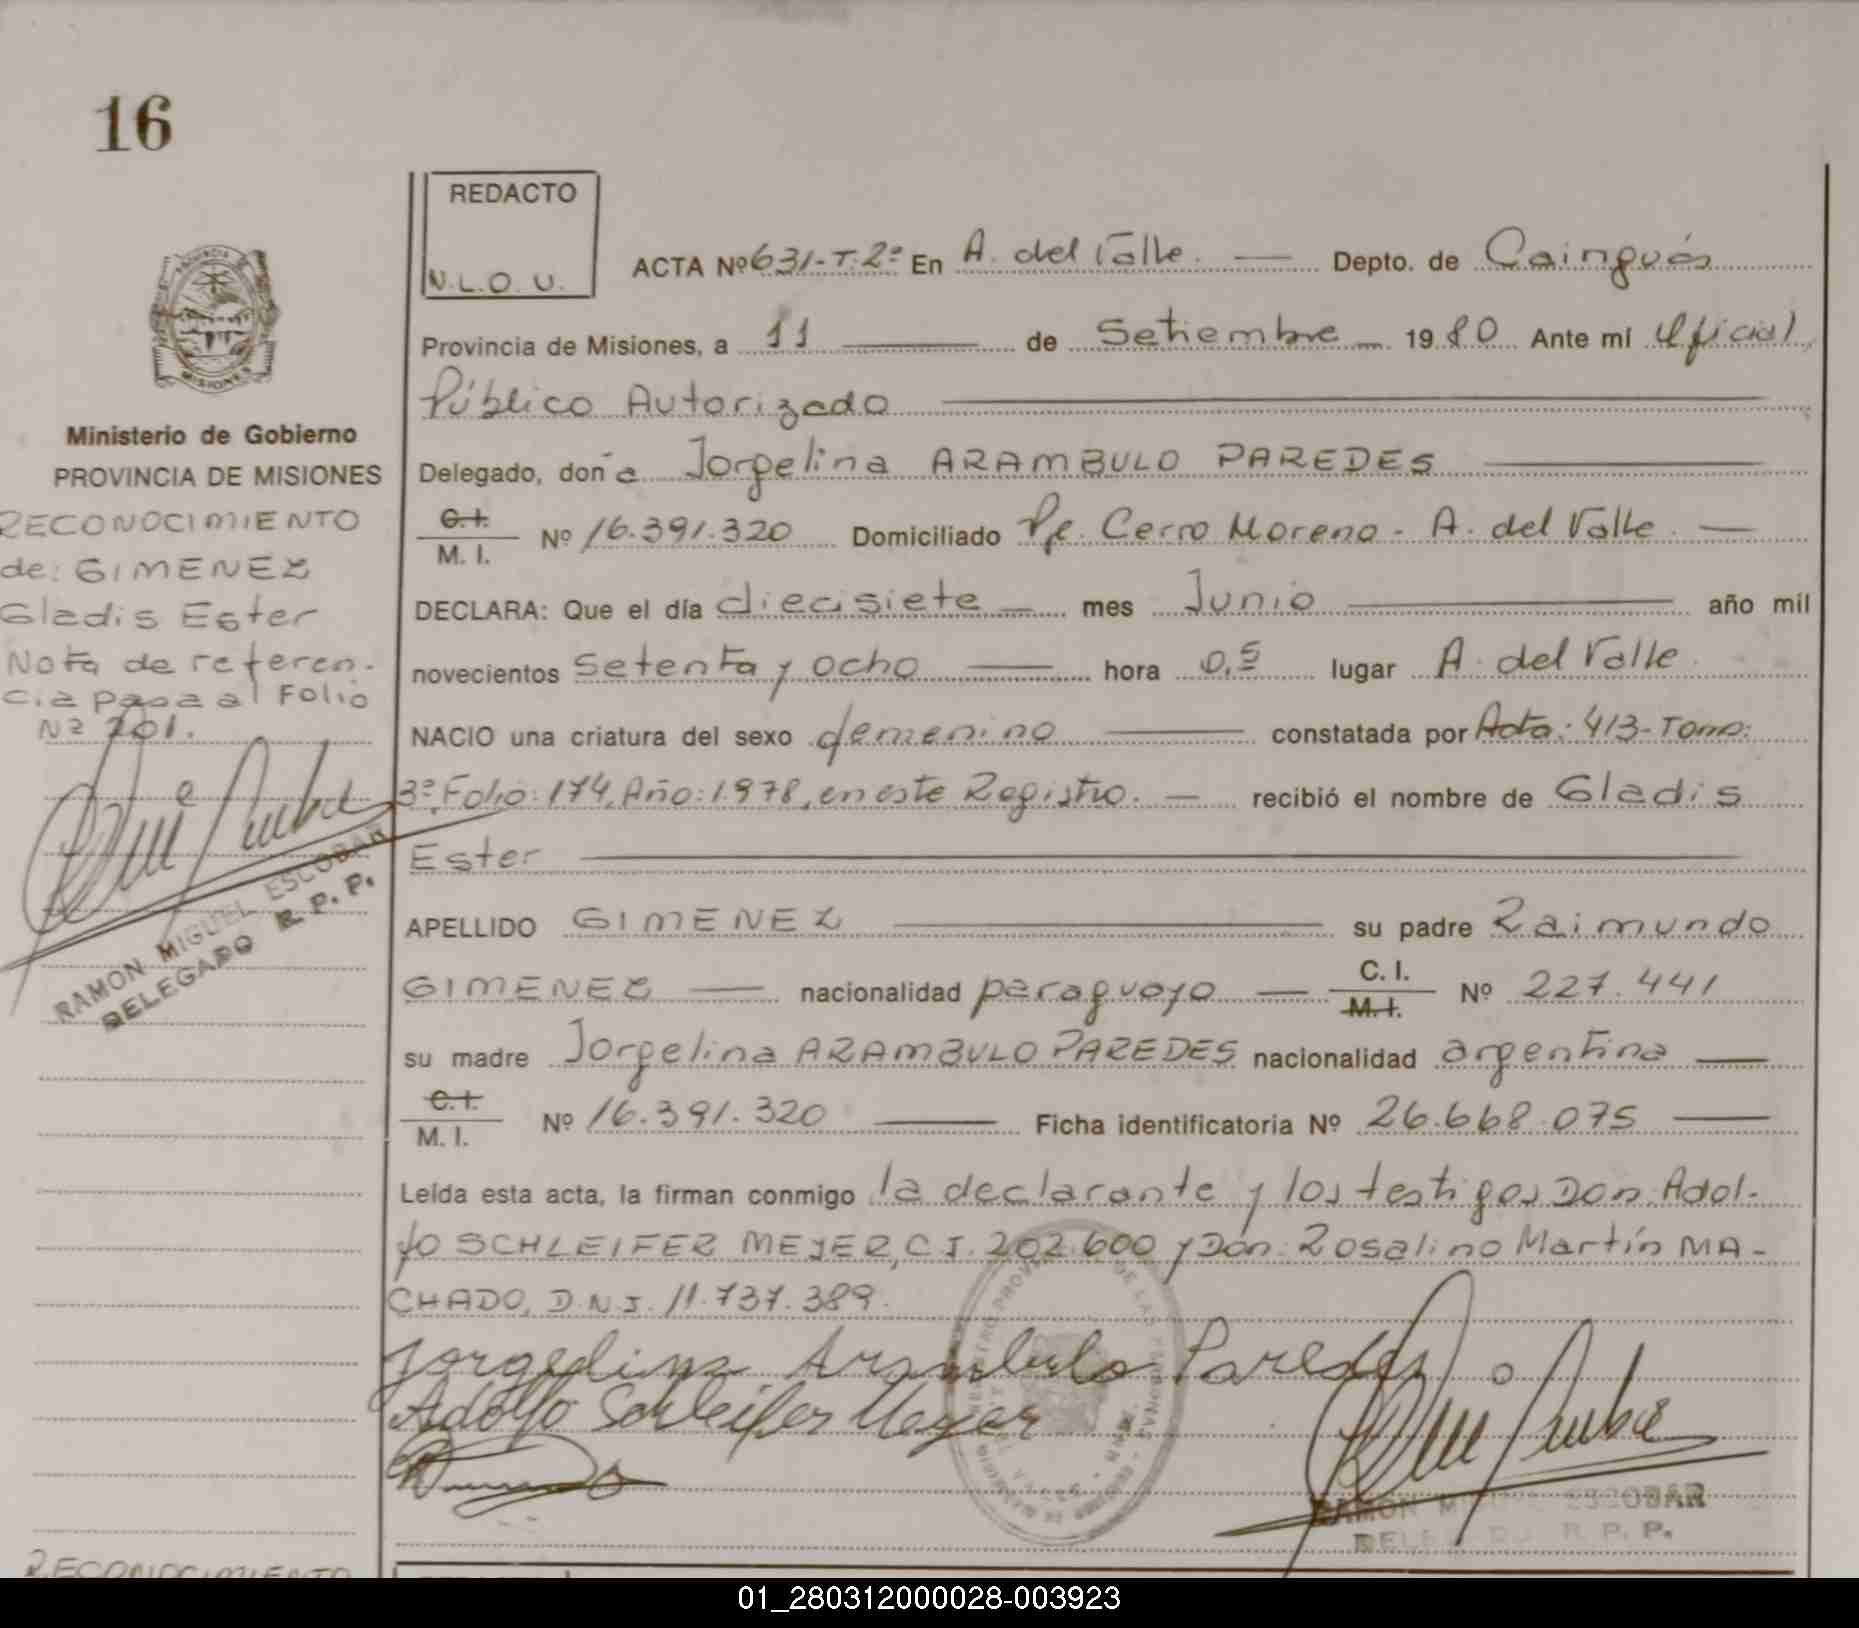 16
REDACTO
N.L.O.U.
ACTA Nº 631-T.2º En A. del Valle. Depto. de Cainguás
Provincia de Misiones, a 11 de Setiembre 1980 Ante mi Oficial
Público Autorizado
Delegado, doña Jorgelina ARAMBULO PAREDES
C.I. M. I. Nº 16.391.320 Domiciliado Pje. Cerro Moreno - A. del Valle
DECLARA: Que el día diecisiete mes Junio año mil
novecientos setenta y ocho hora 0,5 lugar A. del Valle
NACIO una criatura del sexo femenino constatada por Acta: 413-Tomo:
3º, Folio: 174, Año: 1978, en este Registro. recibió el nombre de Gladis
Ester
APELLIDO GIMENEZ su padre Raimundo
GIMENEZ nacionalidad paraguayo C. I. M.I. Nº 227.441
su madre Jorgelina ARAMBULO PAREDES nacionalidad argentina
C.I. M. I. Nº 16.391.320 Ficha identificatoria Nº 26.668.075
Leída esta acta, la firman conmigo la declarante y los testigos Don Adol-
fo SCHLEIFER MEYER, C.I. 202.600 y Don: Rosalino Martín MA-
CHADO, D.N.I. 11.737.389.
Jorgelina Arambulo Paredes
Adolfo Schleifer Meyer
RAMON MIGUEL ESCOBAR
DELEGADO R. P. P.
PROVINCIA DE
MISIONES
Ministerio de Gobierno
PROVINCIA DE MISIONES
RECONOCIMIENTO
de: GIMENEZ
Gladis Ester
Nota de referen-
cia pasa al Folio
Nº 201.
RAMON MIGUEL ESCOBAR
DELEGADO R. P. P.
RECONOCIMIENTO
01_280312000028-003923